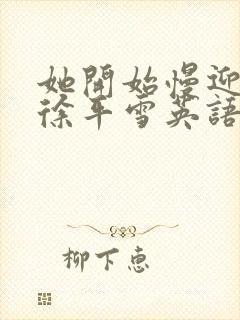 她開始慢迎
徐平雪英語
柳下惠